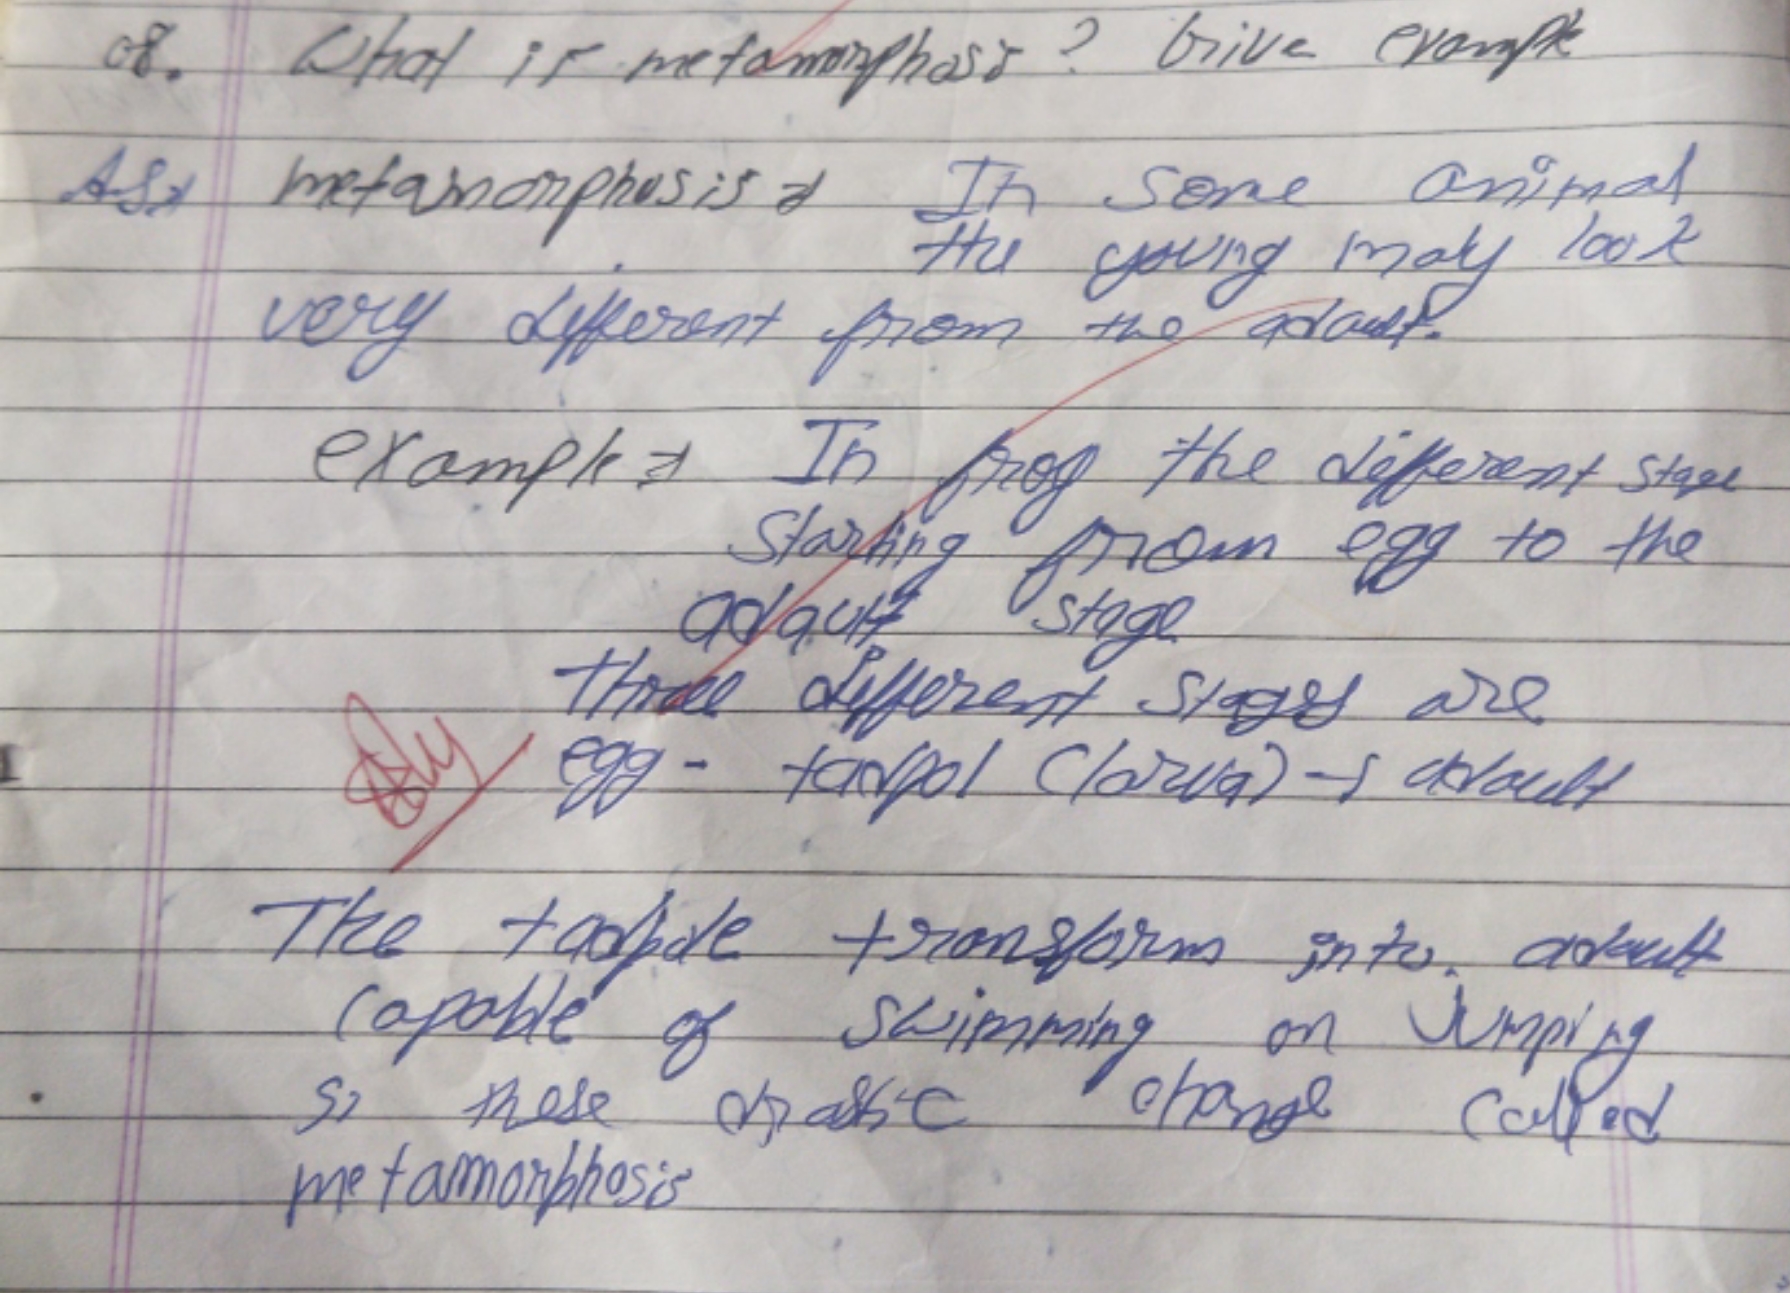 08. What is metamorphosis? Give example
Ans→ metamorphosis → In some animal
the young may look
very different from the adault.
example → In frog the different stage
starting from egg to the
adault stage
three different stages are
egg - tadpol (larva) → adault
The tadpole transform into. adault
capable of swimming on Jumping
so these drastic change called
metamorphosis